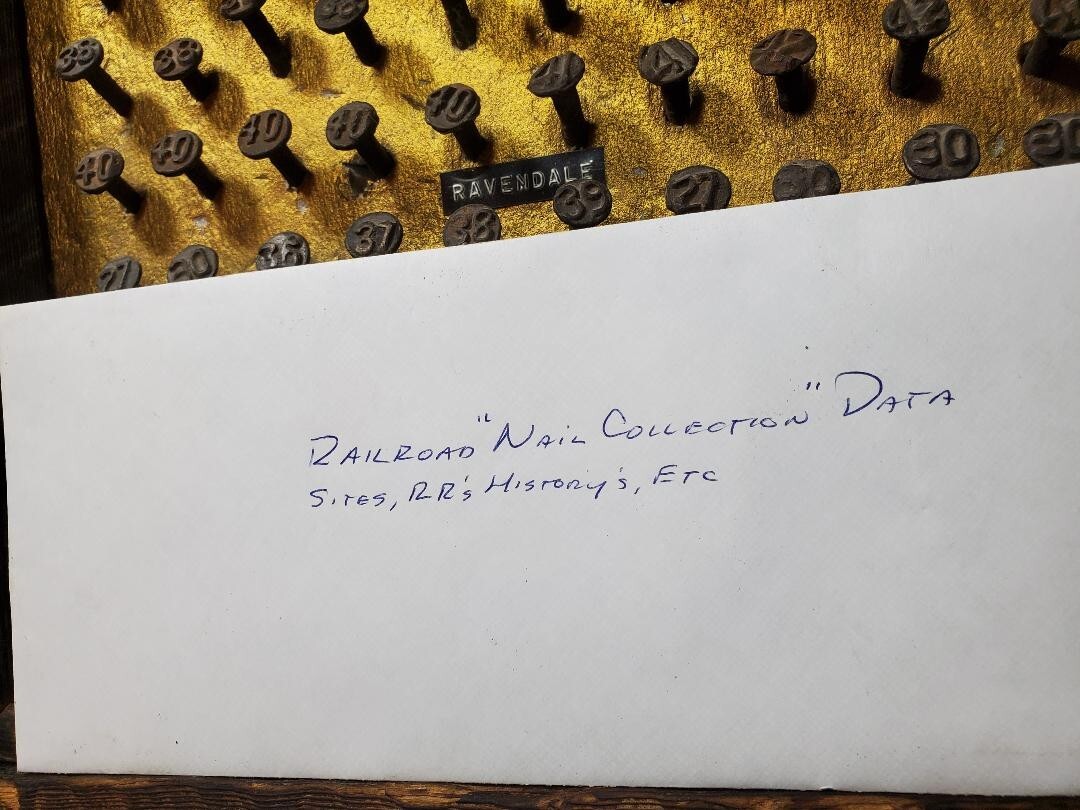 38 38
40 40 40 40 40 41 41 42
RAVENDALE
27 30 36 37 38 39 27 30 30 30
RAILROAD "NAIL COLLECTION" DATA
SITES, RR's HISTORY's, ETC